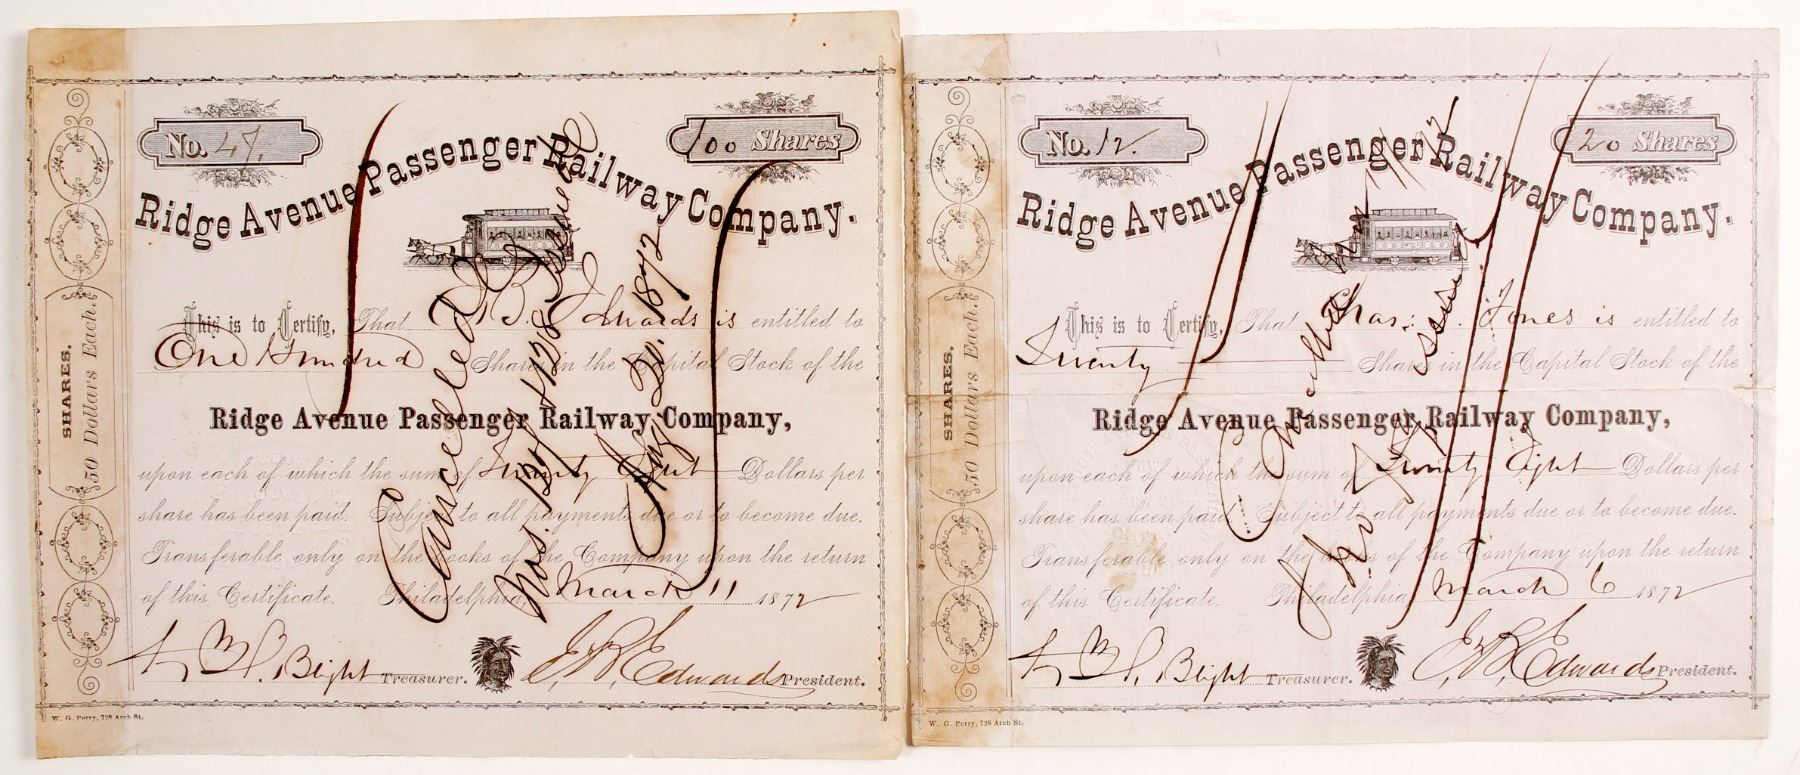 No. 47.
100 Shares
Ridge Avenue Passenger Railway Company.
This is to Certify, That B. Edwards is entitled to
One Hundred Shares in the Capital Stock of the
Ridge Avenue Passenger Railway Company,
upon each of which the sum of Twenty Dollars per
share has been paid. Subject to all payments due or to become due.
Transferable only on the Books of the Company upon the return
of this Certificate. Philadelphia, March 11 1872
Blight Treasurer. E. Edwards President.
SHARES.
50 Dollars Each.
W. G. Perry, 728 Arch St.
Cancelled
Nos. 127 & 128
Aug. 20. 1872
No. 12.
20 Shares
Ridge Avenue Passenger Railway Company.
This is to Certify, That Jones is entitled to
Twenty Shares in the Capital Stock of the
Ridge Avenue Passenger Railway Company,
upon each of which the sum of Twenty Eight Dollars per
share has been paid. Subject to all payments due or to become due.
Transferable only on the Books of the Company upon the return
of this Certificate. Philadelphia, March 6 1872
Blight Treasurer. E. Edwards President.
SHARES.
50 Dollars Each.
W. G. Perry, 728 Arch St.